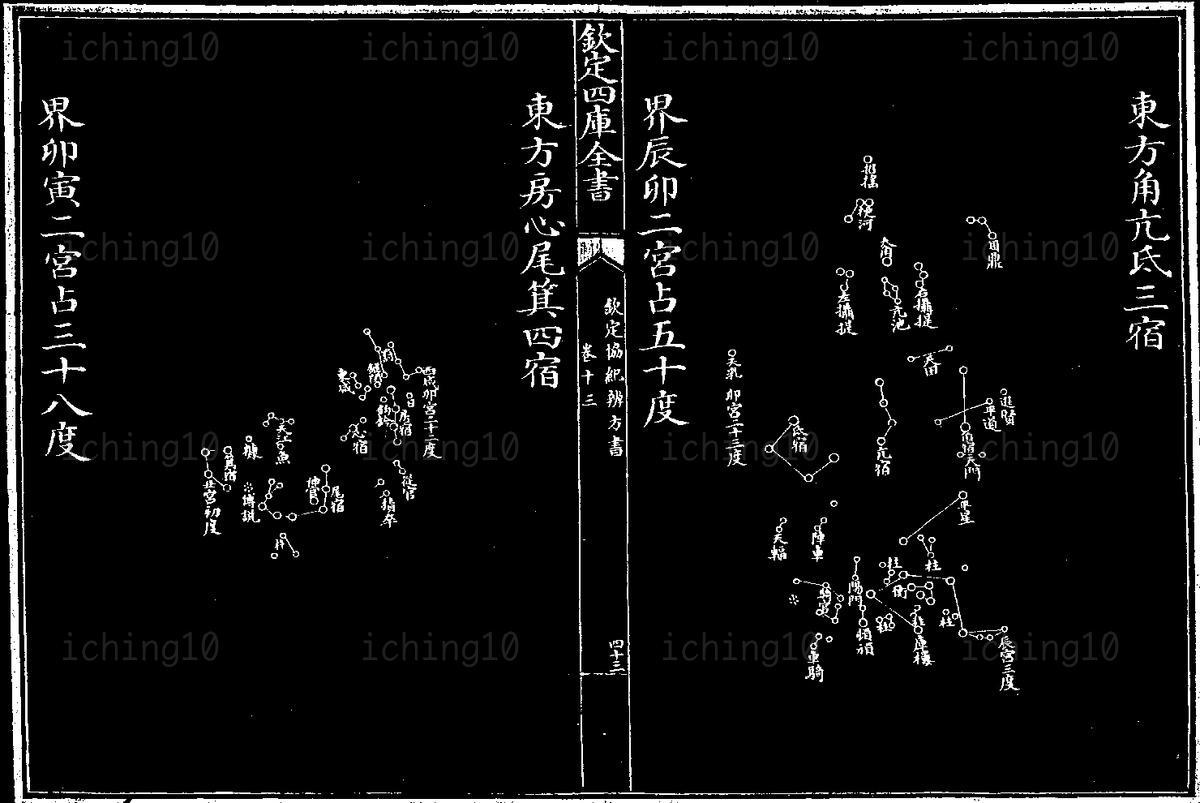 東方角亢氐三宿
招搖
梗河
角鼎
大角
右攝提
亢池
左攝提
天田
進賢
平道
角宿
天門
亢宿
氐宿
天乳
卯宮二十三度
平星
陣車
天輻
柱
柱
衡
陽門
騎官
柱
柱
柱
庫樓
頓頑
車騎
辰宮三度
界辰卯二宮占五十度
欽定四庫全書
欽定協紀辨方書
卷十三
四十三
東方房心尾箕四宿
西咸
卯宮二十二度
罰
鍵閉
東咸
日
房宿
鈎鈐
心宿
從官
積卒
天江
魚
糠
箕宿
丑宮初度
傅說
神宮
尾宿
杵
界卯寅二宮占三十八度
iching10
iching10
iching10
iching10
iching10
iching10
iching10
iching10
iching10
iching10
iching10
iching10
iching10
iching10
iching10
iching10